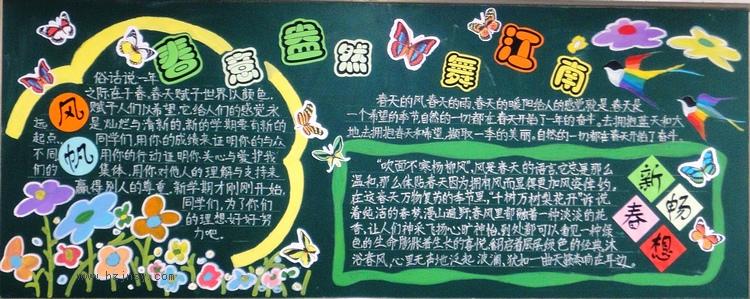 春意盎然舞江南
俗话说一年
之际在于春,春天赋予世界以颜色,
赋予人们以希望,它给人们的感觉永
远是灿烂与清新的,新的学期要有新的
起点,同学们,用你的成绩来证明你的与众
不同,用你的行动证明你关心与爱护我
们的集体,用你对他人的理解与支持来
赢得别人的尊重,新学期才刚刚开始,
同学们,为了你们
的理想好好努
力吧。
风
帆
春天的风,春天的雨,春天的暖阳给人的感觉就是,春天是
一个希望的季节自然的一切都在春天开始了一年的奋斗,去拥抱蓝天和大
地去拥抱春天和希望,撷取一季的美丽,自然的一切都在春天开始了奋斗.
"吹面不寒杨柳风",风是春天的语言,它总是那么
温和,那么体贴春天因为拥有风而显得更加风姿绰约,
在这春天万物复苏的季节里,"千树万树梨花开"诉说
着纯洁的春梦,漫山遍野春风里都融着一种淡淡的花
香,让人们神采飞扬心旷神怡,到处都可以看见一种绿
色的生命膨胀着生长的喜悦,翻启着层层绿色的经典,沐
浴春风,心里无声地泛起波澜,犹如一曲天籁响在耳边.
新
畅
春
想
www.hzjnsy.com